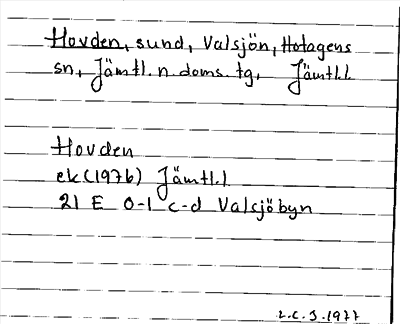 Hovden, sund, Valsjön, Hotagens
sn, Jämtl. n. doms. tg, Jämtl.l
Hovden
ek (1976) Jämtl.l
21 E 0-1 c-d Valsjöbyn
L.C.J. 1977